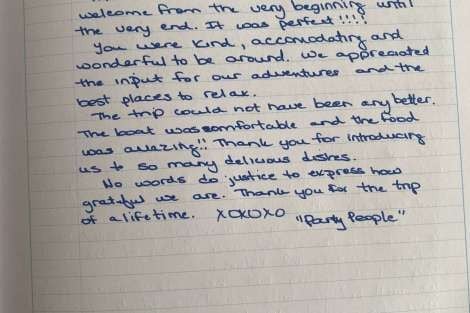 welcome from the very beginning until
the very end. It was perfect!!!!
You were kind, accomodating and
wonderful to be around. We appreciated
the input for our adventures and the
best places to relax.
The trip could not have been any better.
The boat was comfortable and the food
was amazing!! Thank you for introducing
us to so many delicious dishes.
No words do justice to express how
grateful we are. Thank you for the trip
of a lifetime. XOXOXO "Party People"